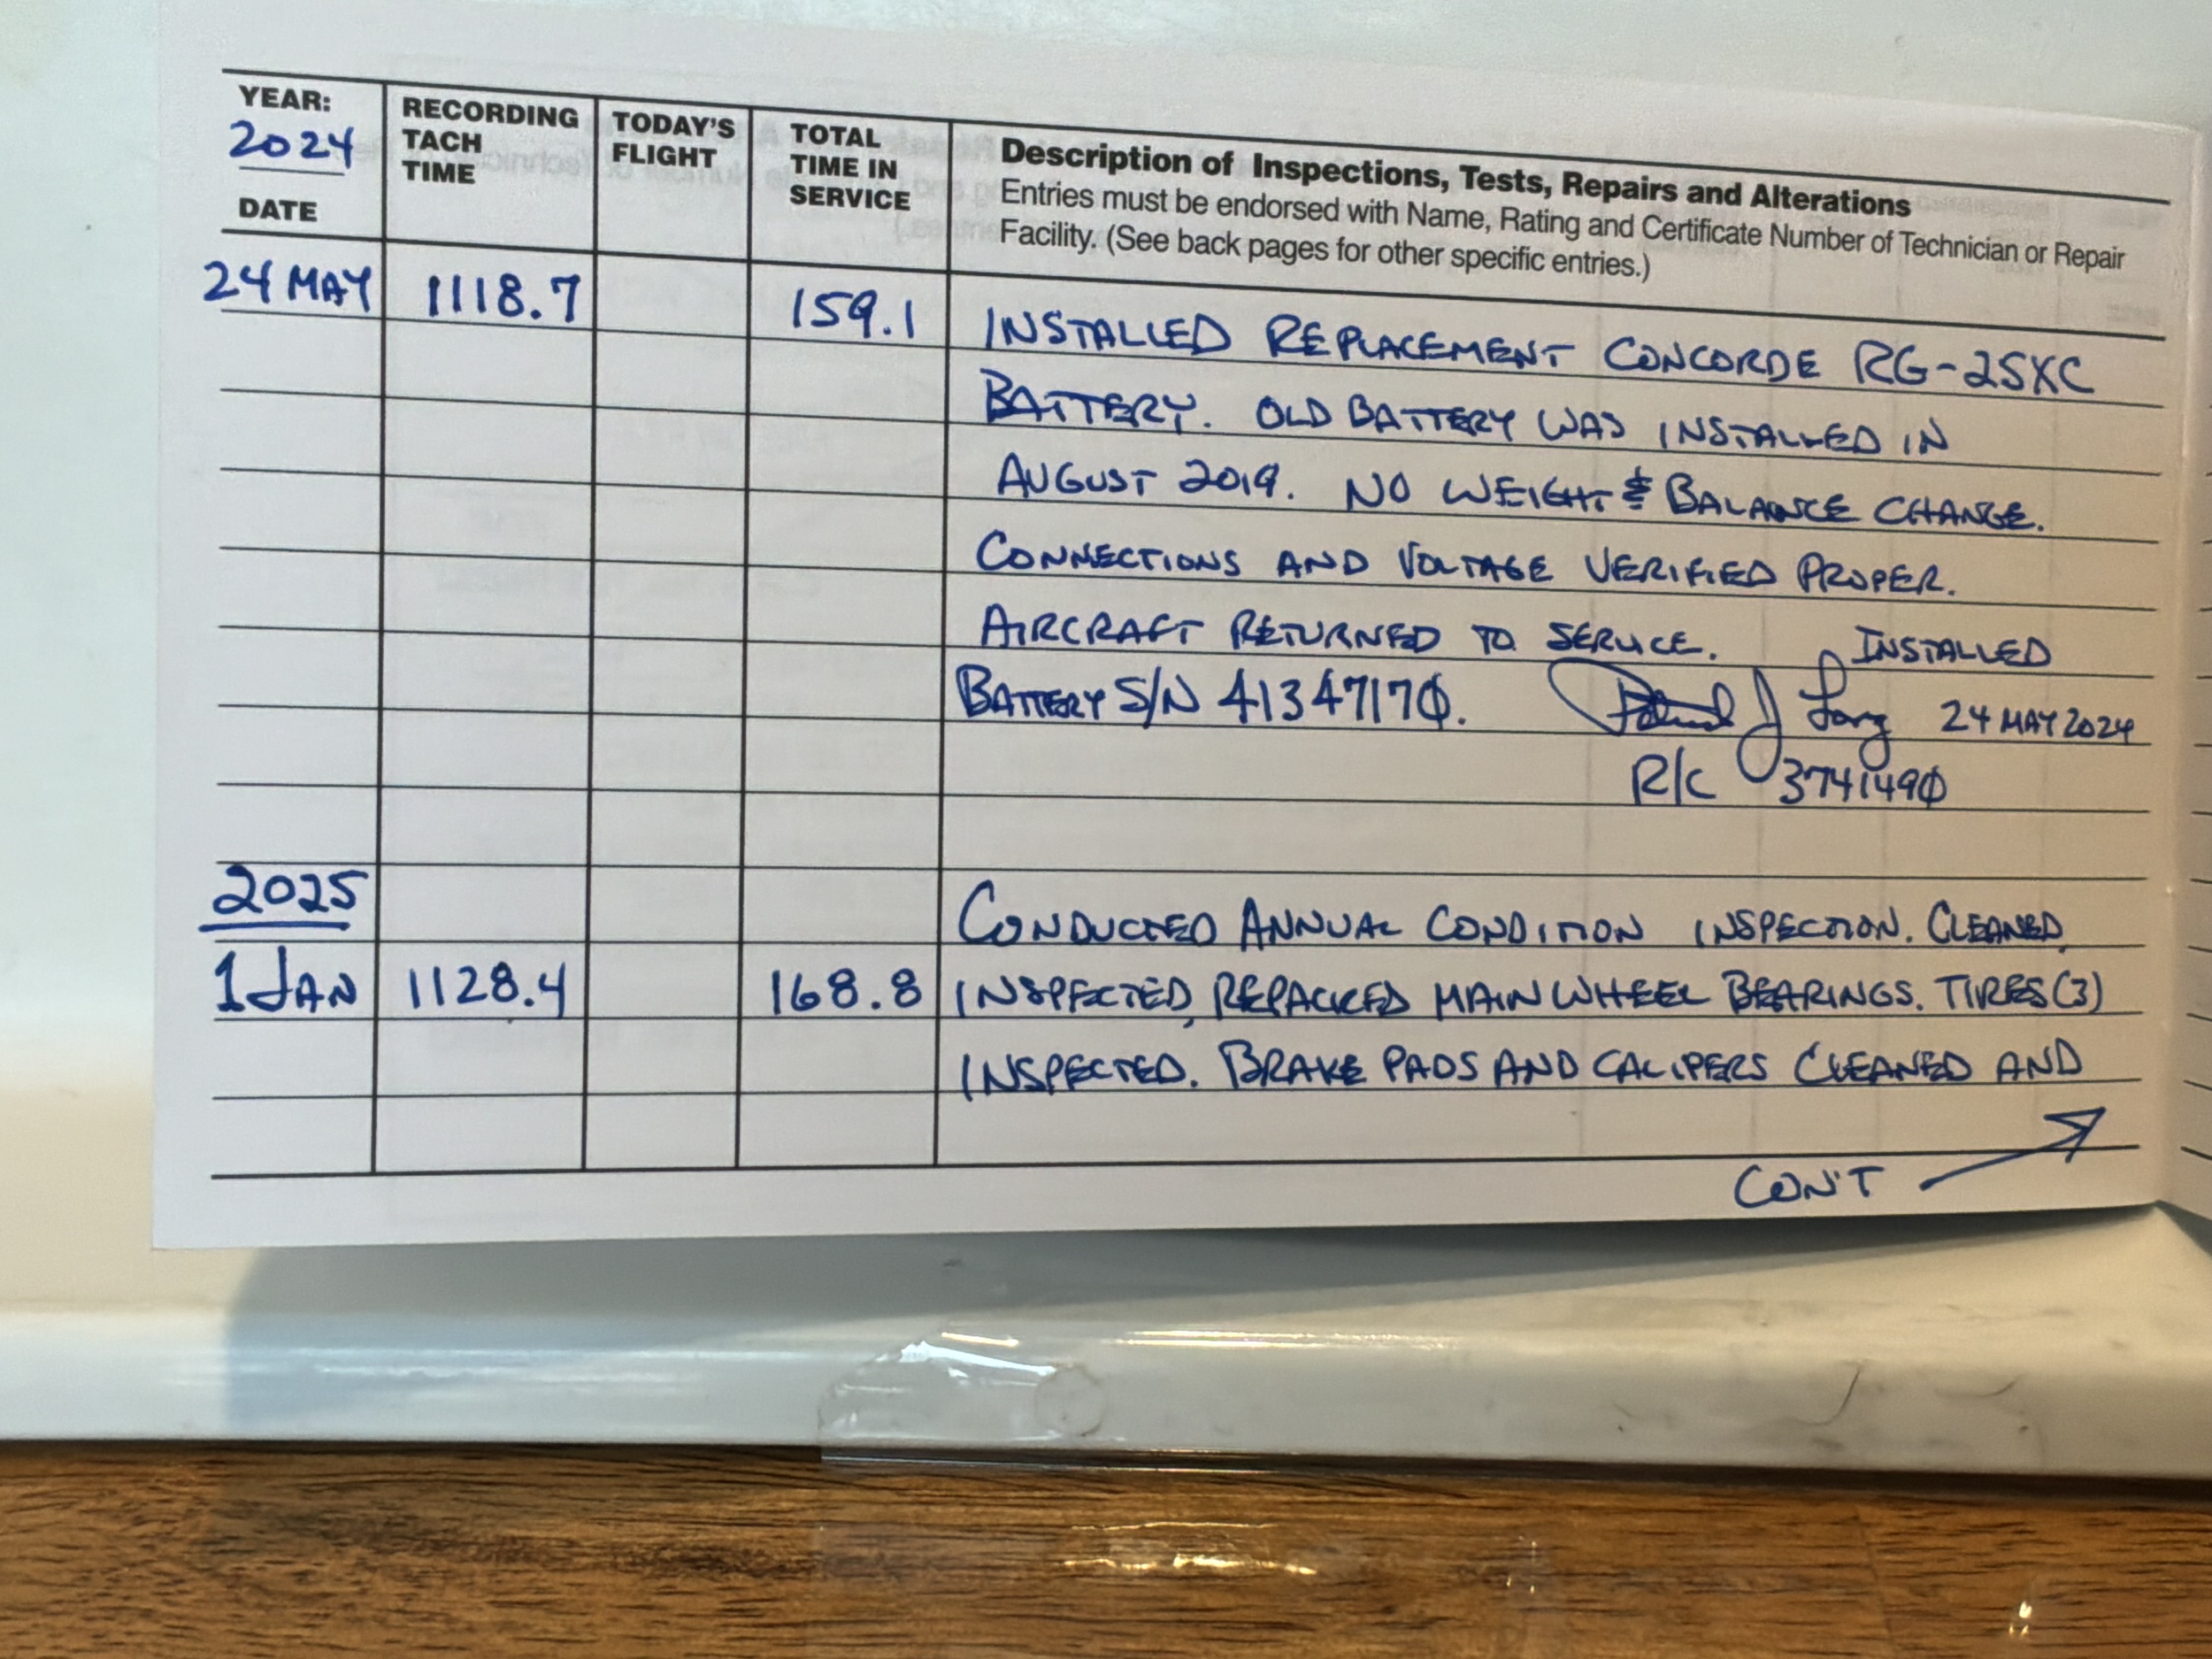 YEAR:
2024
DATE
RECORDING
TACH
TIME
TODAY'S
FLIGHT
TOTAL
TIME IN
SERVICE
Description of Inspections, Tests, Repairs and Alterations
Entries must be endorsed with Name, Rating and Certificate Number of Technician or Repair
Facility. (See back pages for other specific entries.)
24 MAY 1118.7 159.1 INSTALLED REPLACEMENT CONCORDE RG-25XC
BATTERY. OLD BATTERY WAS INSTALLED IN
AUGUST 2019. NO WEIGHT & BALANCE CHANGE.
CONNECTIONS AND VOLTAGE VERIFIED PROPER.
AIRCRAFT RETURNED TO SERVICE. INSTALLED
BATTERY S/N 41347170. 24 MAY 2024
R/C 3741490
2025 CONDUCTED ANNUAL CONDITION INSPECTION. CLEANED,
1 JAN 1128.4 168.8 INSPECTED, REPACKED MAIN WHEEL BEARINGS. TIRES (3)
INSPECTED. BRAKE PADS AND CALIPERS CLEANED AND
CON'T